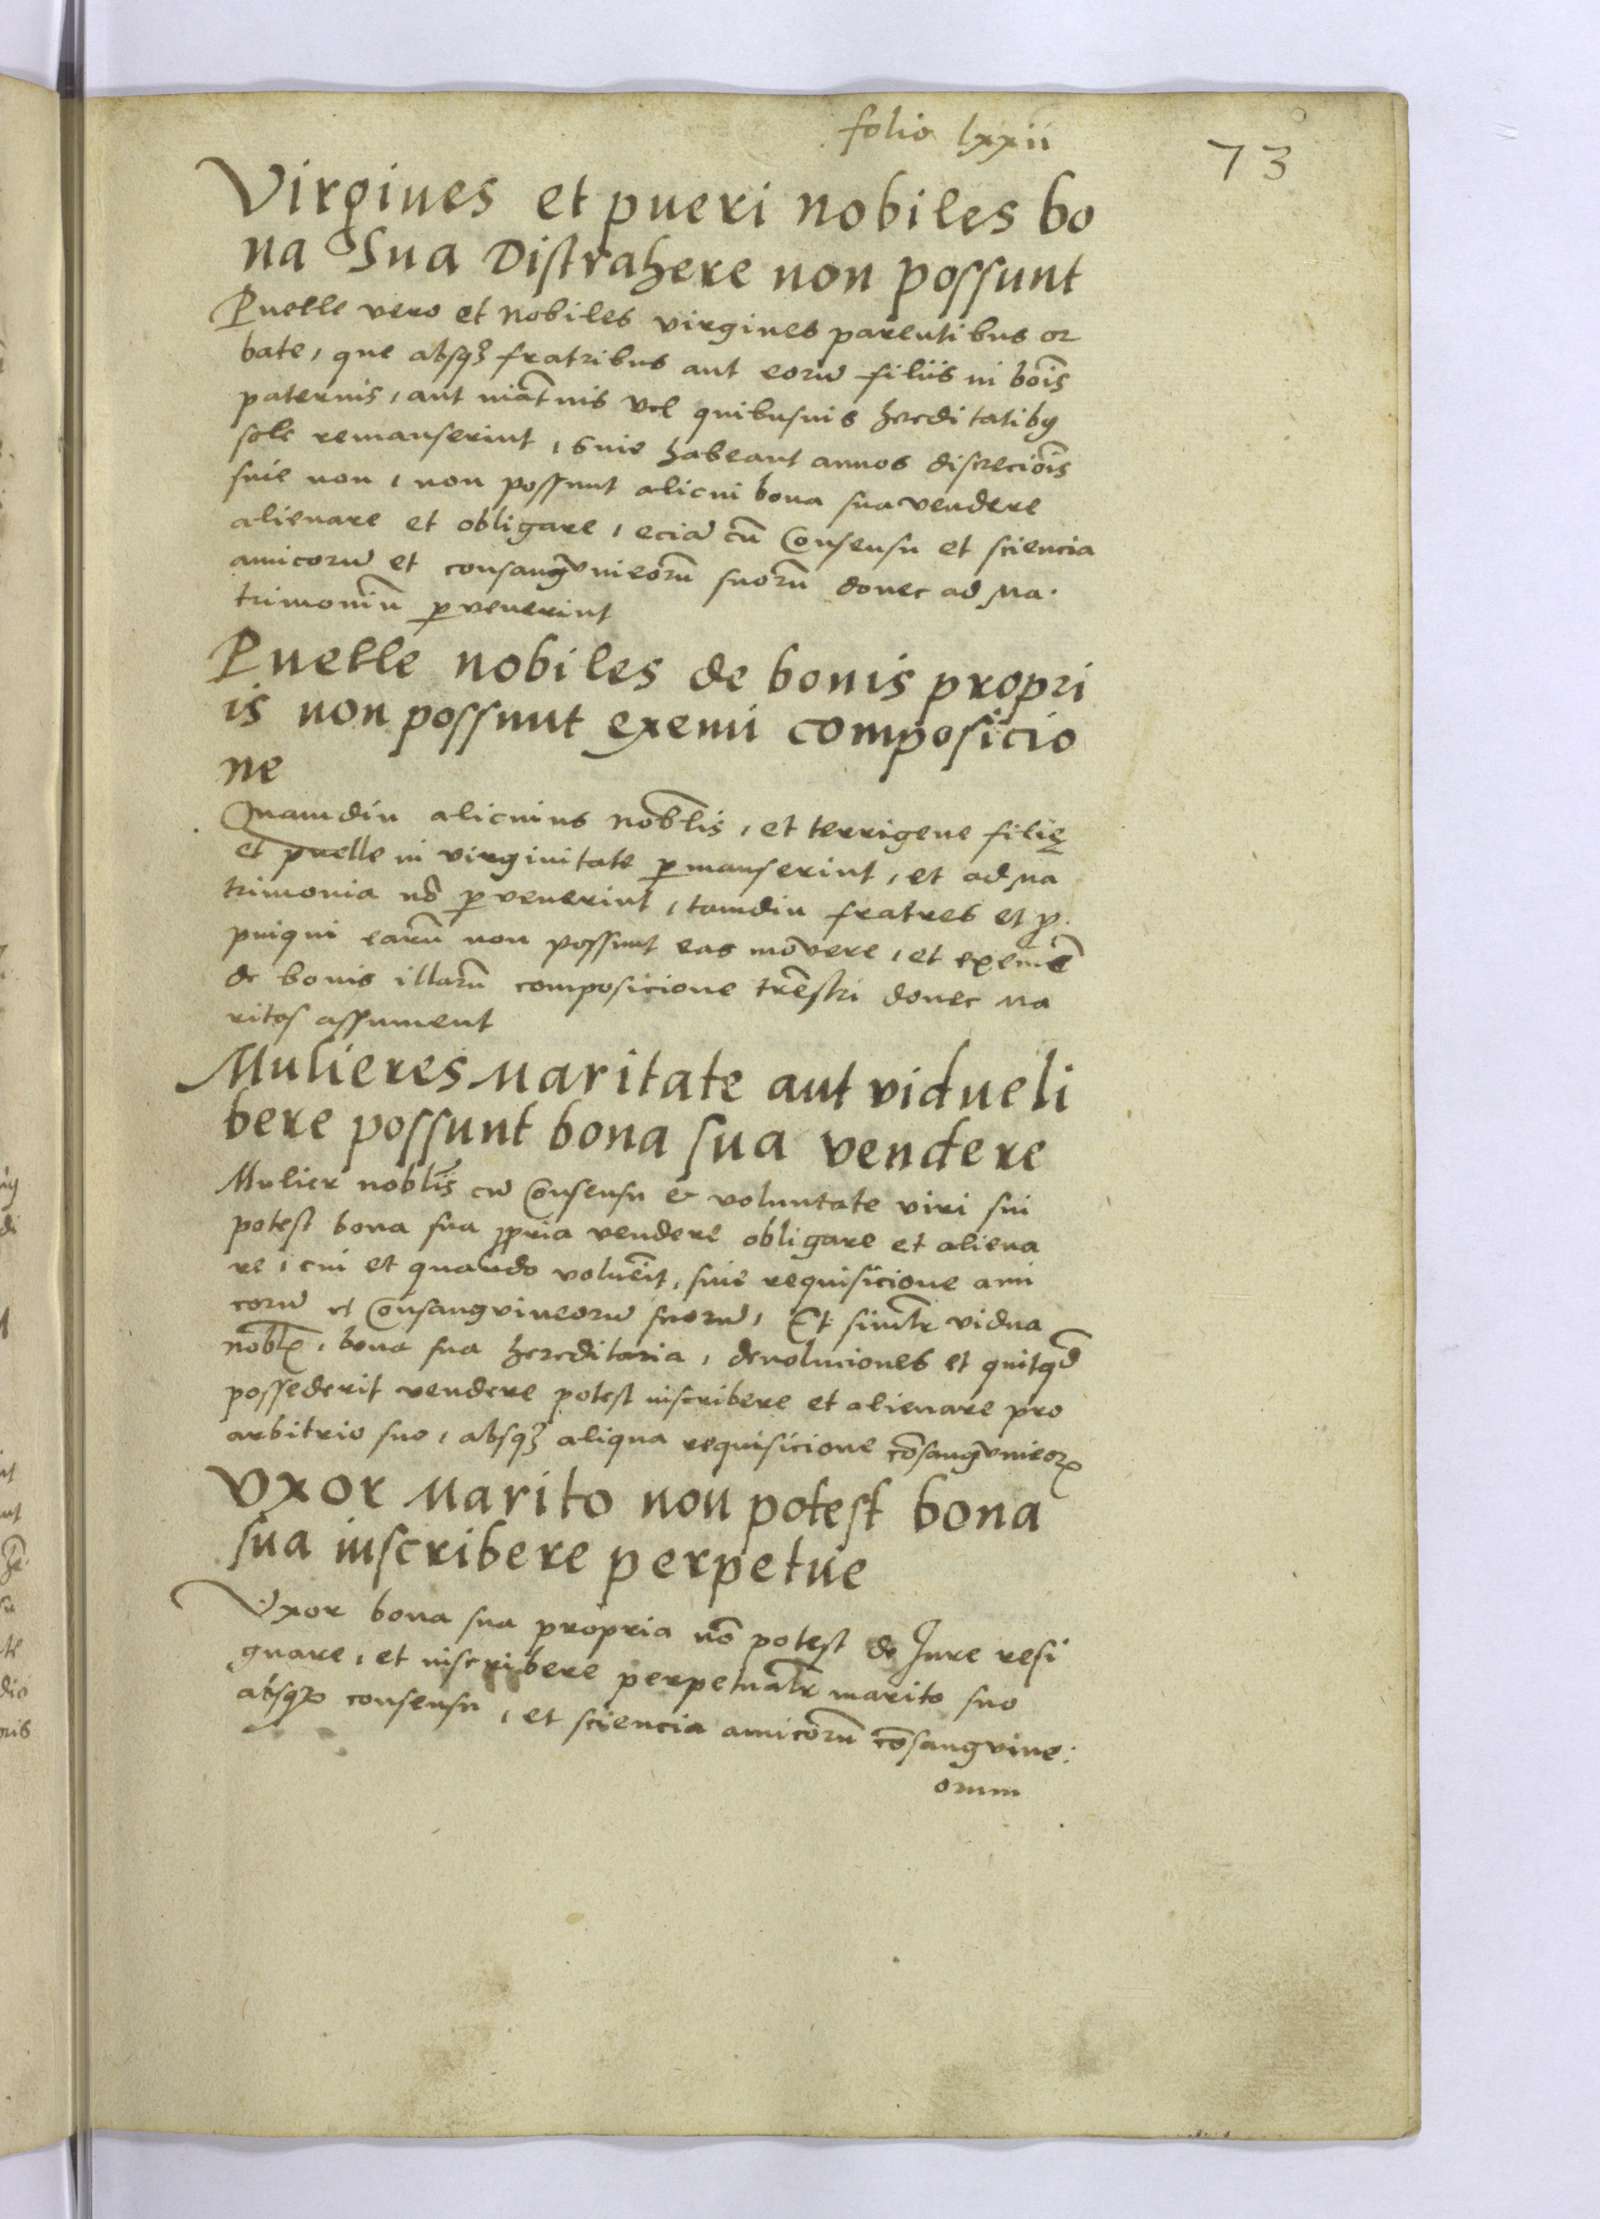 folio lxxii
73
Virgines et pueri nobiles bo
na Sua Distrahere non possunt
Puelle vero et nobiles virgines parentibus or
bate, que absqꝫ fratribus aut eorū filiis in bo͞is
paternis, aut mat͞nis vel quibusuis hereditatibꝰ
sole remanserint, siue habeant annos discrecio͞is
siue non, non possunt alicui bona sua vendere
alienare et obligare, eciā cū Consensu et sciencia
amicorū et consangvineorū suorū donec ad Ma
trimoniū ꝑvenerint
Puelle nobiles de bonis propri
is non possunt exemi composicio
ne
Quamdiu alicuius nob͞lis, et terrigene filię
et puelle in virginitate ꝑmanserint, et ad Ma
trimonia nō ꝑvenerint, tamdiu fratres et ꝓ
pinqui earū non possunt eas movere, et eximē
de bonis illarū composicione tr͞estri donec Ma
ritos assument
Mulieres Maritate aut vidue li
bere possunt bona sua vendere
Mulier nob͞lis cū Consensu & voluntate viri sui
potest bona sua ꝓpria vendere obligare et aliena
re, cui et quando volue͞it, sine requisicione ami
corū et Consangvineorū suorū, Et simil͞r vidua
nob͞lꝭ, bona sua hereditaria, devoluciones et quitqđ
possederit vendere potest inscribere et alienare pro
arbitrio suo, absqꝫ aliqua requisicione cōsangvineoꝝ
Vxor Marito non potest bona
sua inscribere perpetue
Vxor bona sua propria nō potest de Jure resi
gnare, et inscribere perpetual͞r marito suo
absqꝫ consensu, et sciencia amicorū cōsangvine:
orum